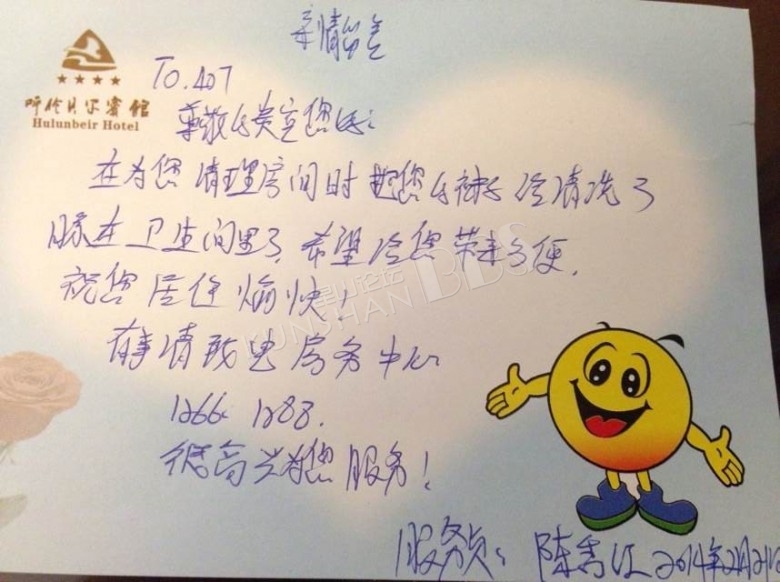 亲情留言
★★★★
呼伦贝尔宾馆
Hulunbeir Hotel
TO.407
尊敬的贵宾您好:
在为您清理房间时把您的袜子给清洗了
晾在卫生间里了,希望给您带来方便.
祝您居住愉快!
有事请致电房务中心
1266 1288.
很高兴为您服务!
服务员: 陈 2014年2月21日
昆山论坛
KUNSHAN BBS